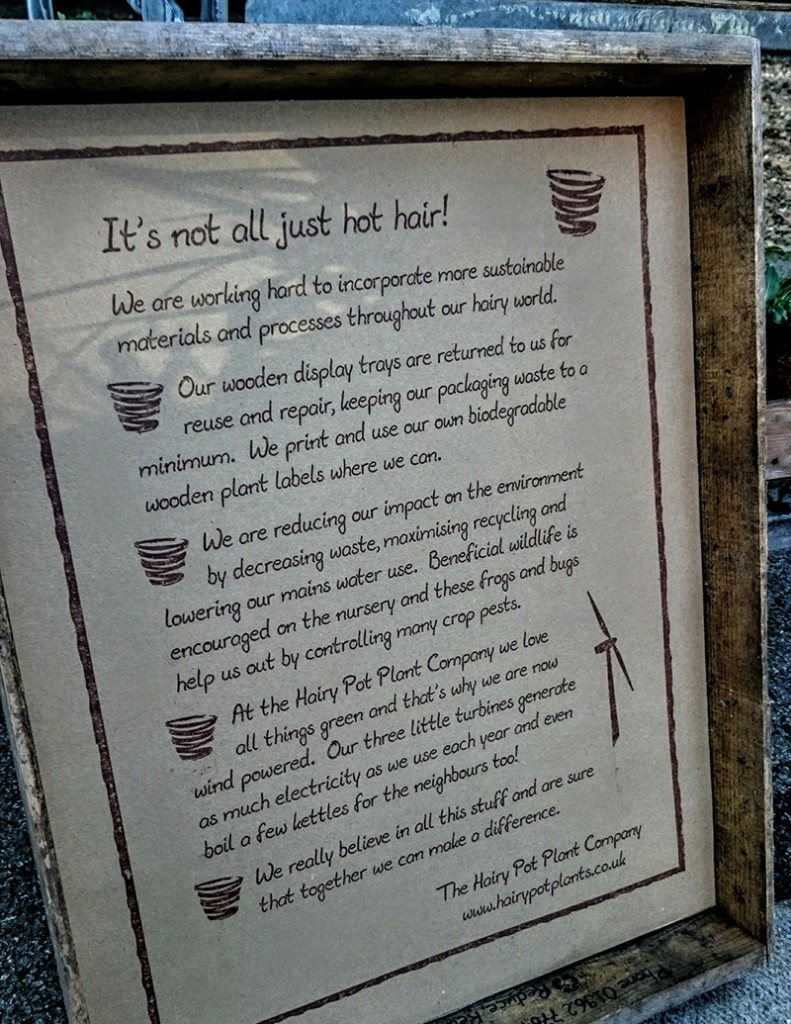 It's not all just hot hair!
We are working hard to incorporate more sustainable
materials and processes throughout our hairy world.
Our wooden display trays are returned to us for
reuse and repair, keeping our packaging waste to a
minimum. We print and use our own biodegradable
wooden plant labels where we can.
We are reducing our impact on the environment
by decreasing waste, maximising recycling and
lowering our mains water use. Beneficial wildlife is
encouraged on the nursery and these frogs and bugs
help us out by controlling many crop pests.
At the Hairy Pot Plant Company we love
all things green and that's why we are now
wind powered. Our three little turbines generate
as much electricity as we use each year and even
boil a few kettles for the neighbours too!
We really believe in all this stuff and are sure
that together we can make a difference.
The Hairy Pot Plant Company
www.hairypotplants.co.uk
Phone 01962
Reduce